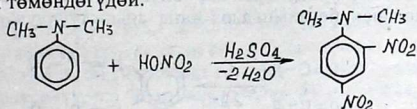 төмөндөгүдөй.
CH₃–N–CH₃ + HONO₂ H₂SO₄ –2H₂O CH₃–N–CH₃ NO₂ NO₂